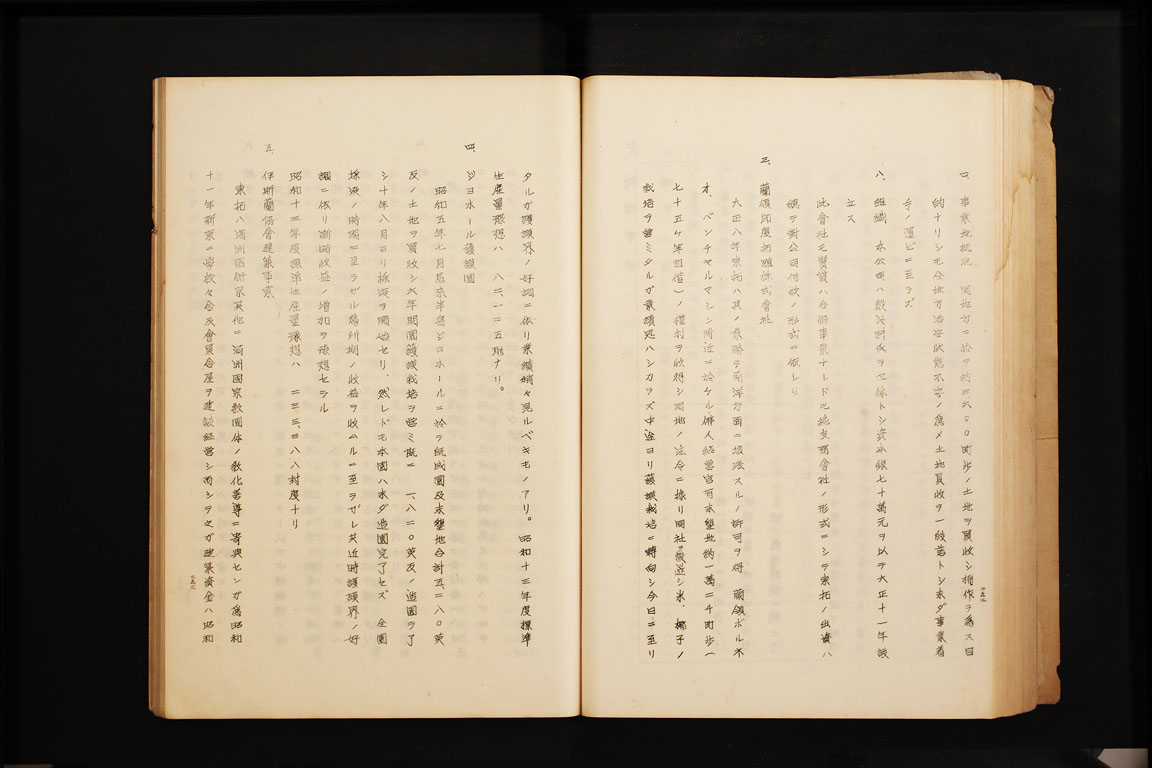 ロ、事業地概況 同地方ニ於テ約二、六〇〇町歩ノ土地ヲ買収シ棉作ヲ為ス目
的ナリシモ今地方治安状態不安ノ為メ土地買収ヲ一段落トシ未ダ事業着
手ノ運ビニ至ラズ
ハ、組織 本公司ハ殷汝耕氏ヲ主体トシ資本銀七十萬元ヲ以テ大正十一年設
立ス
此會社モ實質ハ合辦事業ナレドモ純支那會社ノ形式ニシテ東拓ノ出資ハ
總テ對公司付款ノ形式ニ依レリ
三、蘭領印度拓殖株式會社
大正八年東拓ハ其ノ業務ヲ南洋方面ニ擴張スルノ許可ヲ得 蘭領ボルネ
オ、バンヂヤルマシン附近ニ於ケル佛人経営官有未墾地約一萬二千町歩(
七十五ケ年租借)ノ權利ヲ收得シ同地ノ法令ニ據リ同社ヲ設立シ米、椰子ノ
栽培ヲ營ミタルガ業績思ハシカラズ中途ヨリ護謨栽培ニ轉向シ今日ニ至リ
タルガ護謨界ノ好調ニ依リ業績稍々見ルベキモノアリ。昭和十三年度標準
生産量豫想ハ 八二、一二五瓩ナリ。
四、ジヨホール護謨園
昭和五年七月馬来半島ジヨホールニ於テ既成園及未墾地合計五、二八〇英
反ノ土地ヲ買收シ六年間園護謨栽培ヲ營ミ既ニ 一、八二〇英反ノ造園ヲ了
シ十年八月ヨリ採液ヲ開始セリ、然レトモ本園ハ未ダ造園完了セズ 全園
採液ノ時機ニ至ラザル為所期ノ收益ヲ收ムルニ至ラザレ共近時護謨界ノ好
調ニ依リ漸時收益ノ増加ヲ豫想セラル
昭和十三年度標準生産量豫想ハ 二三三、三八八封度ナリ
五、伊斯蘭協會建築事業
東拓ハ満洲國側ノ文化ニ満洲國宗教團体ノ教化善導ニ寄與センガ為昭和
十一年新京ニ學校々舎及會員宿屋ヲ建設経営シ而シテ之ガ建築資金ハ昭和